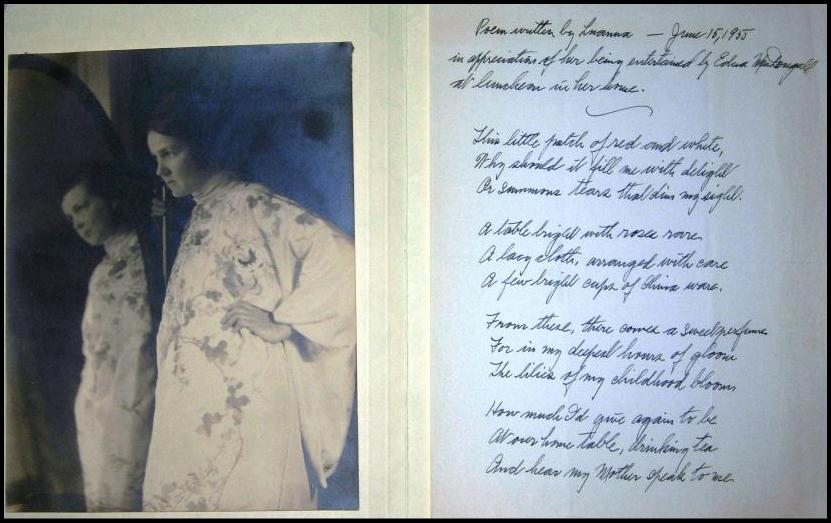 Poem written by Luanna — June 15, 1955
in appreciation of her being entertained by Edna MacDougall
at luncheon in her home.
This little patch of red and white,
Why should it fill me with delight
Or summons tears that dim my sight.
A table bright with roses rare
A lacy cloth, arranged with care
A few bright cups of China ware.
From these, there comes a sweet perfume
For in my deepest hours of gloom
The lilies of my childhood bloom
How much I'd give again to be
At our home table, drinking tea
And hear my Mother speak to me